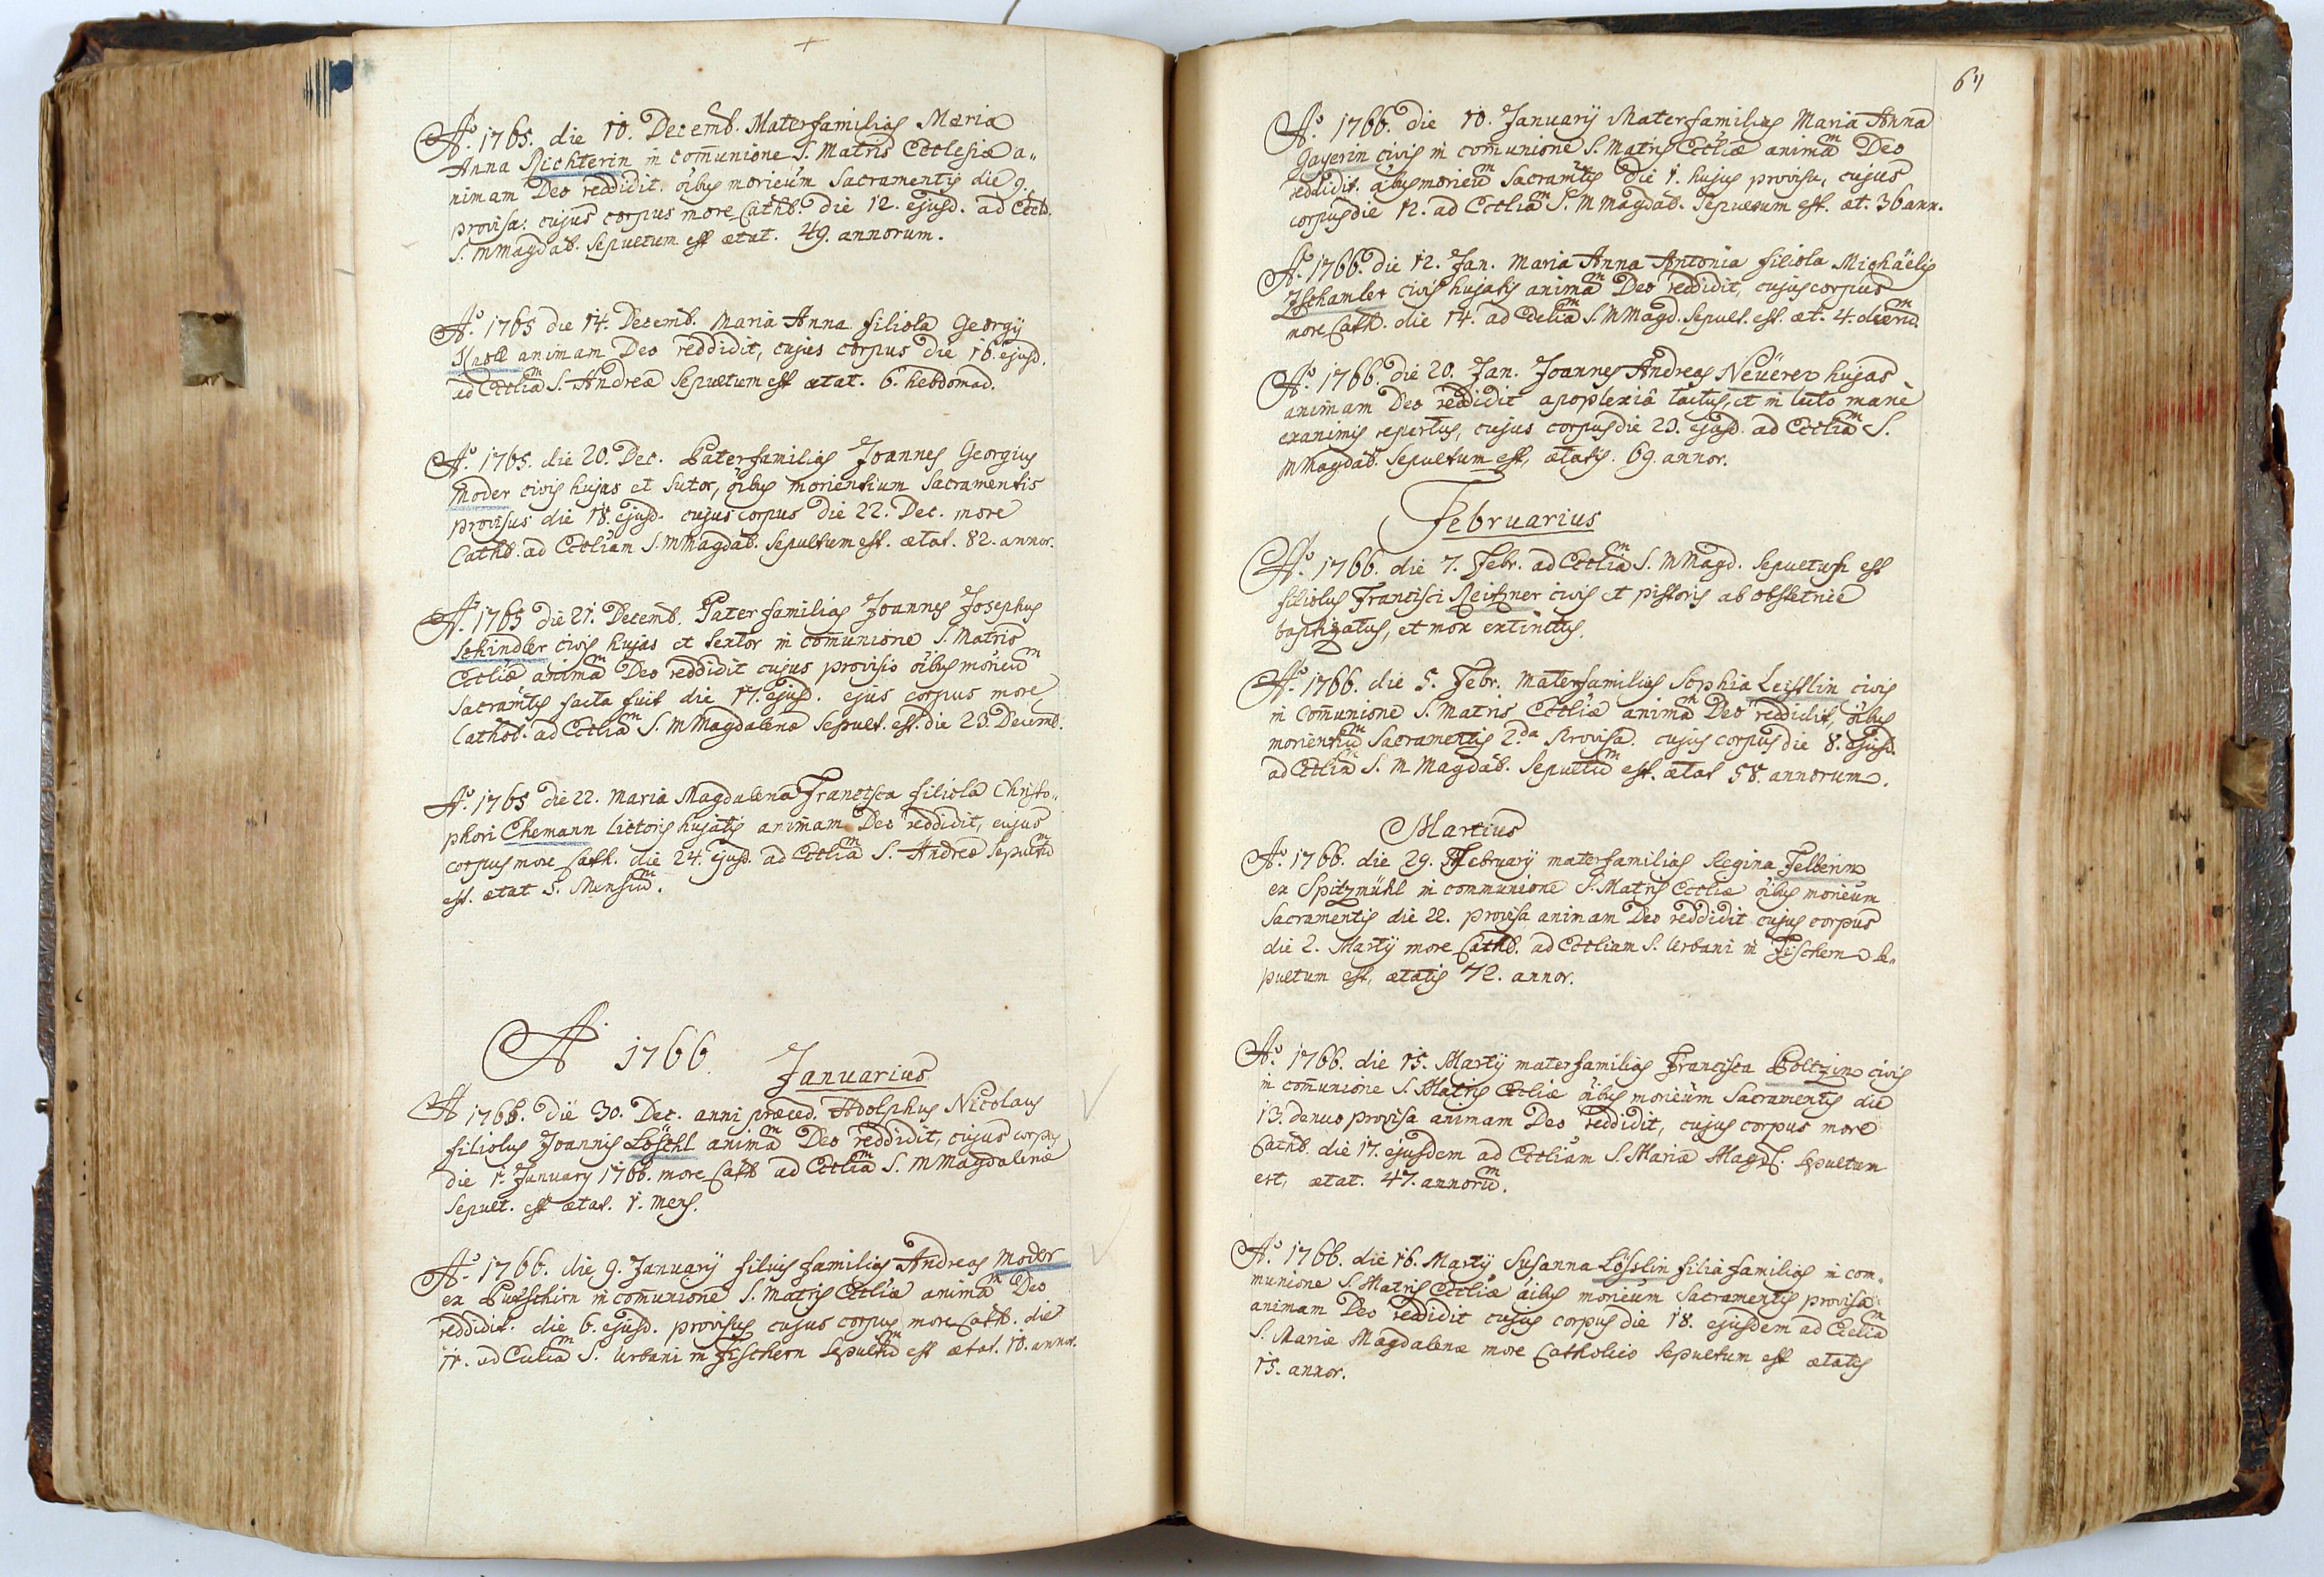 Aº. 1765. die 10. Decemb. Materfamilias Maria
Anna Richterin in com̄unione S. Matris Ecclesiæ a„
nimam Deo reddidit. oĩbus morieũm Sacramentis die 9.
provisa: cujus corpus more Cathol. die 12. ejusd. ad Eccl.
S. M Magdal. Sepultum est ætat. 49. annorum.
Aº. 1765 die 14. Decemb. Maria Anna filiola Georgÿ
animam Deo reddidit, cujus corpus die 16. ejusd.
ad Eccliam S. Andreæ Sepultum est ætat. 6. hebdomad.
Aº. 1765. die 20. Dec. Paterfamilias Joannes Georgius
Moder civis hujas et Sutor, oĩbus morientium Sacramentis
provisus die 18. ejusd. cujus corpus die 22. Dec. more
Cathol. ad Eccliam S. M Magdal. Sepultum est. ætat. 82. annor.
Aº. 1765 die 21. Decemb. Paterfamilias Joannes Josephus
Schindler civis hujas et Sartor in com̄unione S. Matris
Eccliæ animam Deo reddidit cujus provisio oĩbus morieum
Sacramtis facta fuit die 17. ejusd. ejus corpus more
Cathol. ad Eccliam S. M Magdalenæ Sepult. est. die 23. Decemb.
Aº. 1765 die 22. Maria Magdalena Francisca filiola Christo„
phori Ehemann lictoris hujatis animam Deo reddidit, cujus
corpus more Cath. die 24. ejusd. ad Eccliam S. Andreæ Sepultum
est. ætat 5. Mensium.
A. 1766.
Januarius
A 1766. die 30. Dec. anni præced. Adolphus Nicolaus
filiolus Joannis Löschl animam Deo reddidit, cujus corpus
die 1. January 1766. more Cath ad Eccliam S. M Magdalenæ
Sepult. est ætat. 1. mens.
Aº. 1766. die 9. Januarÿ filius familias Andreas Moder
ex Putschirn in com̄unione S. Matris Eccliæ animam Deo
reddidit. die 6. ejusd. provisus cujus corpus more Cath. die
11. ad Eccliam S. Urbani in Fischern Sepultum est ætat. 10. annor.
Aº. 1766. die 10. Januarÿ Materfamilias Maria Anna
Gayerin civis in com̄unione S. Matris Eccliæ animam Deo
reddidit. oĩbus morieum Sacramtis die 1. hujus provisa, cujus
corpus die 12. ad Eccliam S. M Magdal. Sepultum est. æt. 36 ann.
Aº. 1766. die 12. Jan. Maria Anna Antonia filiola Michäelis
civis hujatis animam Deo reddidit, cujus corpus
more Cath. die 14. ad Eccliam S. M Magd. Sepult. est. æt. 4. dierum.
Aº. 1766. die 20. Jan. Joannes Andreas Neüerer hujas
animam Deo reddidit apoplexiâ tactus, et in lecto manè
exanimis repertus, cujus corpus die 23. ejusd. ad Eccliam S.
M Magdal. Sepultum est, ætatis. 69. annor.
Februarius
Aº. 1766. die 7. Febr. ad Eccliam S. M Magd. Sepultus est
filiolus Francisci Reißner civis et pistoris ab obstetrice
baptizatus, et mox extinctus.
Aº. 1766. die 5. Febr. Materfamilias Sophia Leistlin civis
in Com̄unione S. Matris Eccliæ animam Deo reddidit, oĩbus
morientium Sacramentis 2.da Provisa. cujus corpus die 8. ejusd.
ad Eccliam S. M Magdal. Sepultum est. ætat 58. annorum.
Martius
Aº. 1766. die 29. February materfamilias Regina Felberin
ex Spitzmühl in communione S. Matris Eccliæ oĩbus morieũm
Sacramentis die 22. provisa animam Deo reddidit cujus corpus
die 2. Martÿ more Cathol. ad Eccliam S. Urbani in Fischern Se„
pultum est, ætatis 72. annor.
Aº. 1766. die 15. Martÿ materfamilias Francisca Poltzin civis
in com̄unione S. Matris Eccliæ oĩbus morieũm Sacramentis die
13. denuo provisa animam Deo reddidit, cujus corpus more
Cathol. die 17. ejusdem ad Eccliam S. Mariæ Magd. Sepultum
est, ætat. 47. annorum.
Aº. 1766. die 16. Martÿ Susanna Lößlin filia familias in com„
munione S. Matris Eccliæ oĩbus morieũm Sacramentis provisa
animam Deo reddidit cujus corpus die 18. ejusdem ad Eccliam
S. Mariæ Magdalenæ more Catholico Sepultum est ætatis
15. annor.